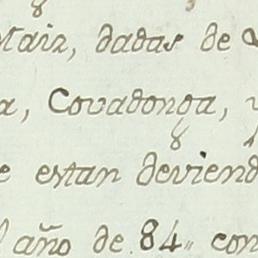 Maiz, dadas de
a, Covadonga, y
e estan deviend
l año de 84,, con